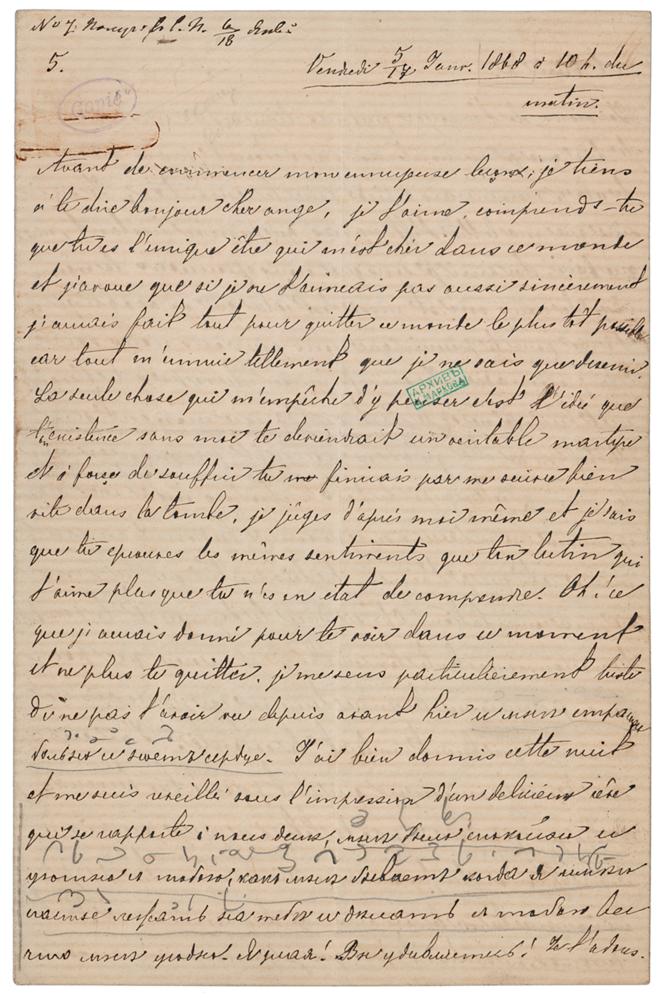 5.
Vendredi 5/17 Janv. 1868 à 10 h. du
matin.
Copié
Avant de commencer mon ennuyeuse leçon, je tiens
à te dire bonjour cher ange, je t'aime, comprends-tu
que tu es l'unique être qui m'est cher dans ce monde
et j'avoue que si je ne t'aimais pas aussi sincèrement
j'aurais fait tout pour quitter ce monde le plus tôt possible
car tout m'ennuie tellement que je ne sais que devenir.
АРХИВЪ
МАРКОВА
La seule chose qui m'empêche d'y penser c'est l'idée que
l'existence sans moi te deviendrait un véritable martyre
et à force de souffrir tu finirais par me suivre bien
vite dans la tombe, je juges d'après moi même et je sais
que tu eprouves les mêmes sentiments que ton lutin qui
t'aime plus que tu n'es en état de comprendre. Oh! ce
que j'aurais donné pour te voir dans ce moment
et ne plus te quitter, je me sens particulièrement triste
de ne pas t'avoir vu depuis avant hier и меня
J'ai bien dormis cette nuit
et me suis reveillé sous l'impression d'un delicieux rêve
qui se rapporte à nous deux, меня
меня когда я
тебя и
меня Je t'adore.